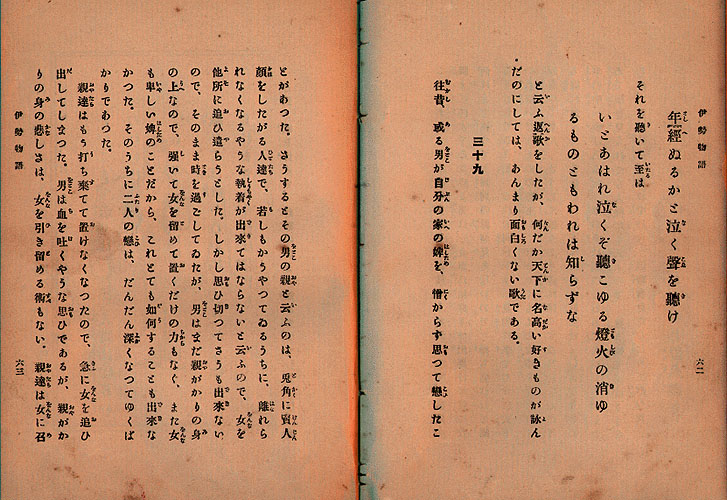 伊勢物語
六二
年經ぬるかと泣く聲を聽け
それを聽いて至は
いとあはれ泣くぞ聽こゆる燈火の消ゆ
るものともわれは知らずな
と云ふ返歌をしたが、何だか天下に名高い好きものが詠ん
だのにしては、あんまり面白くない歌である。
三十九
往昔、或る男が自分の家の婢を、憎からず思つて戀したこ
とがあつた。さうするとその男の親と云ふのは、兎角に賣人
顏をしたがる人達で、若しもかうやつてゐるうちに、離れら
れなくなるやうな執着が出來てはならないと云ふので、女を
他所に追ひ遣らうとした。しかし思ひ切つてさうも出來ない
ので、そのまま時を過ごしてゐたが、男はまだ親がかりの身
の上なので、强いて女を留めて置くだけの力もなく、また女
も卑しい婢のことだから、これとても如何することも出來な
かつた。そのうちに二人の戀は、だんだん深くなつてゆくば
かりであつた。
親達はもう打ち棄てて置けなくなつたので、急に女を追ひ
出してしまつた。男は血を吐くやうな思ひであるが、親がか
りの身の悲しさは、女を引き留める術もない。親達は女に召
伊勢物語
六三